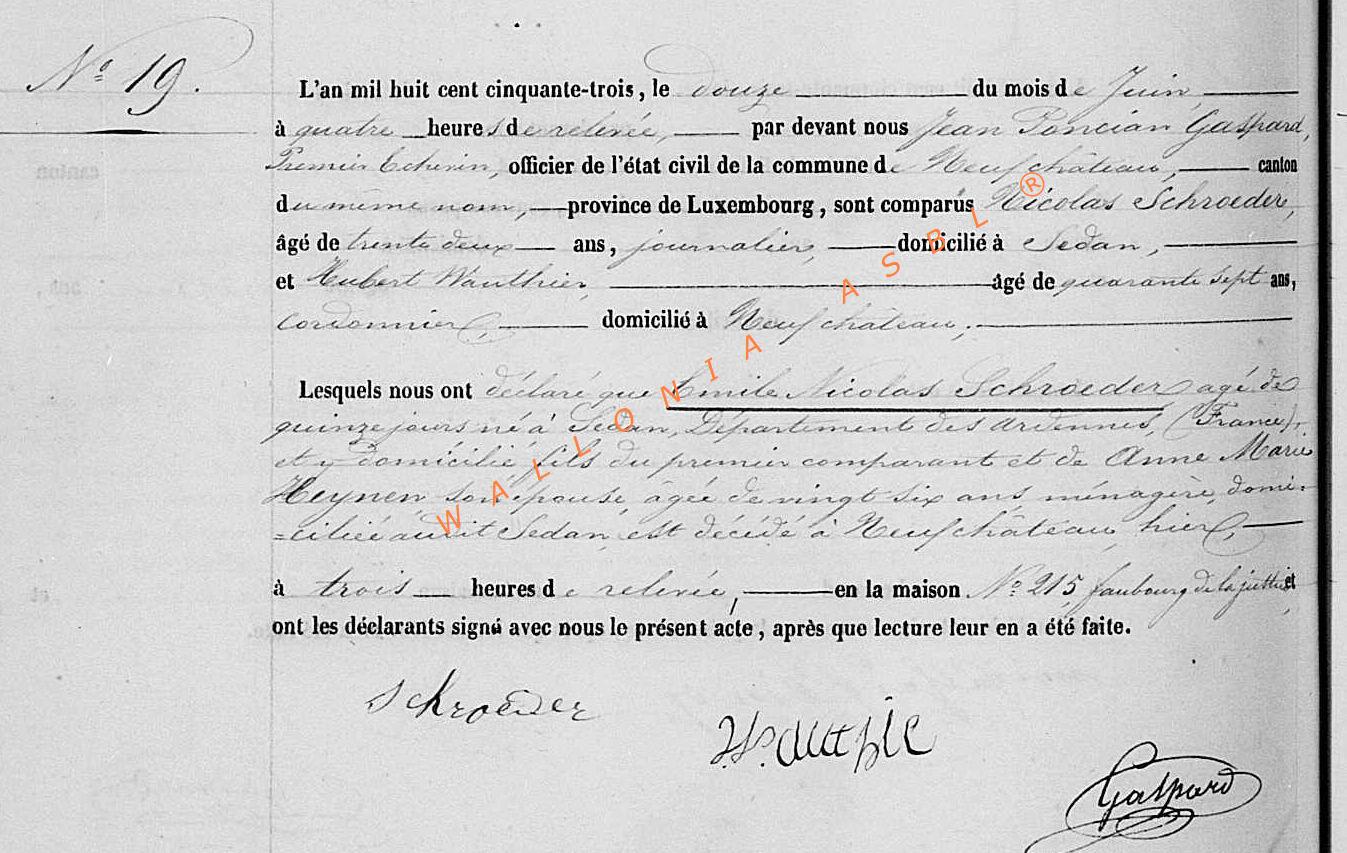 N° 19.
L'an mil huit cent cinquante-trois, le douze du mois de Juin
à quatre heures de relevée, par devant nous Jean Poncian Gaspard,
Premier Echevin, officier de l'état civil de la commune de Neufchâteau, canton
du même nom, province de Luxembourg, sont comparus Nicolas Schroeder,
âgé de trente deux ans, journalier, domicilié à Sedan,
et Hubert Wauthier, âgé de quarante sept ans,
cordonnier, domicilié à Neufchâteau;
Lesquels nous ont déclaré que Emile Nicolas Schroeder agé de
quinze jours né à Sedan, Département des Ardennes, (France),
et y domicilié, fils du premier comparant et de Anne Marie
Heynen son épouse, âgée de vingt six ans, ménagère, domi-
=ciliée audit Sedan, est décédé à Neufchâteau, hier,
à trois heures de relevée, en la maison N° 215, faubourg de la et
ont les déclarants signé avec nous le présent acte, après que lecture leur en a été faite.
schroeder
Gaspard
WALLONIA ASBL ®